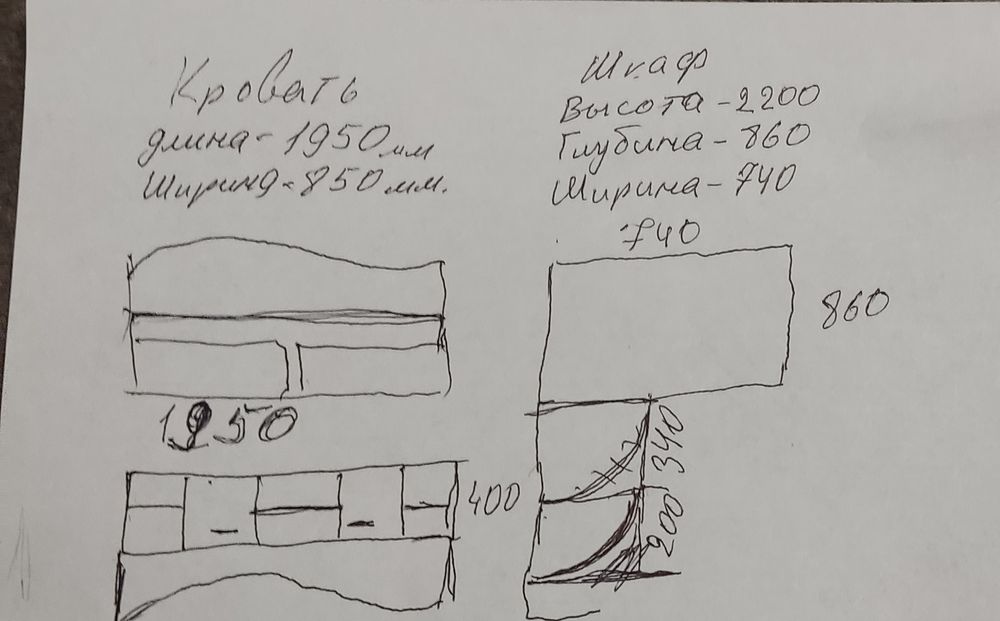 Кровать
длина - 1950 мм
Ширина - 850 мм.
1950
400
Шкаф
Высота - 2200
Глубина - 860
Ширина - 740
740
860
340
200